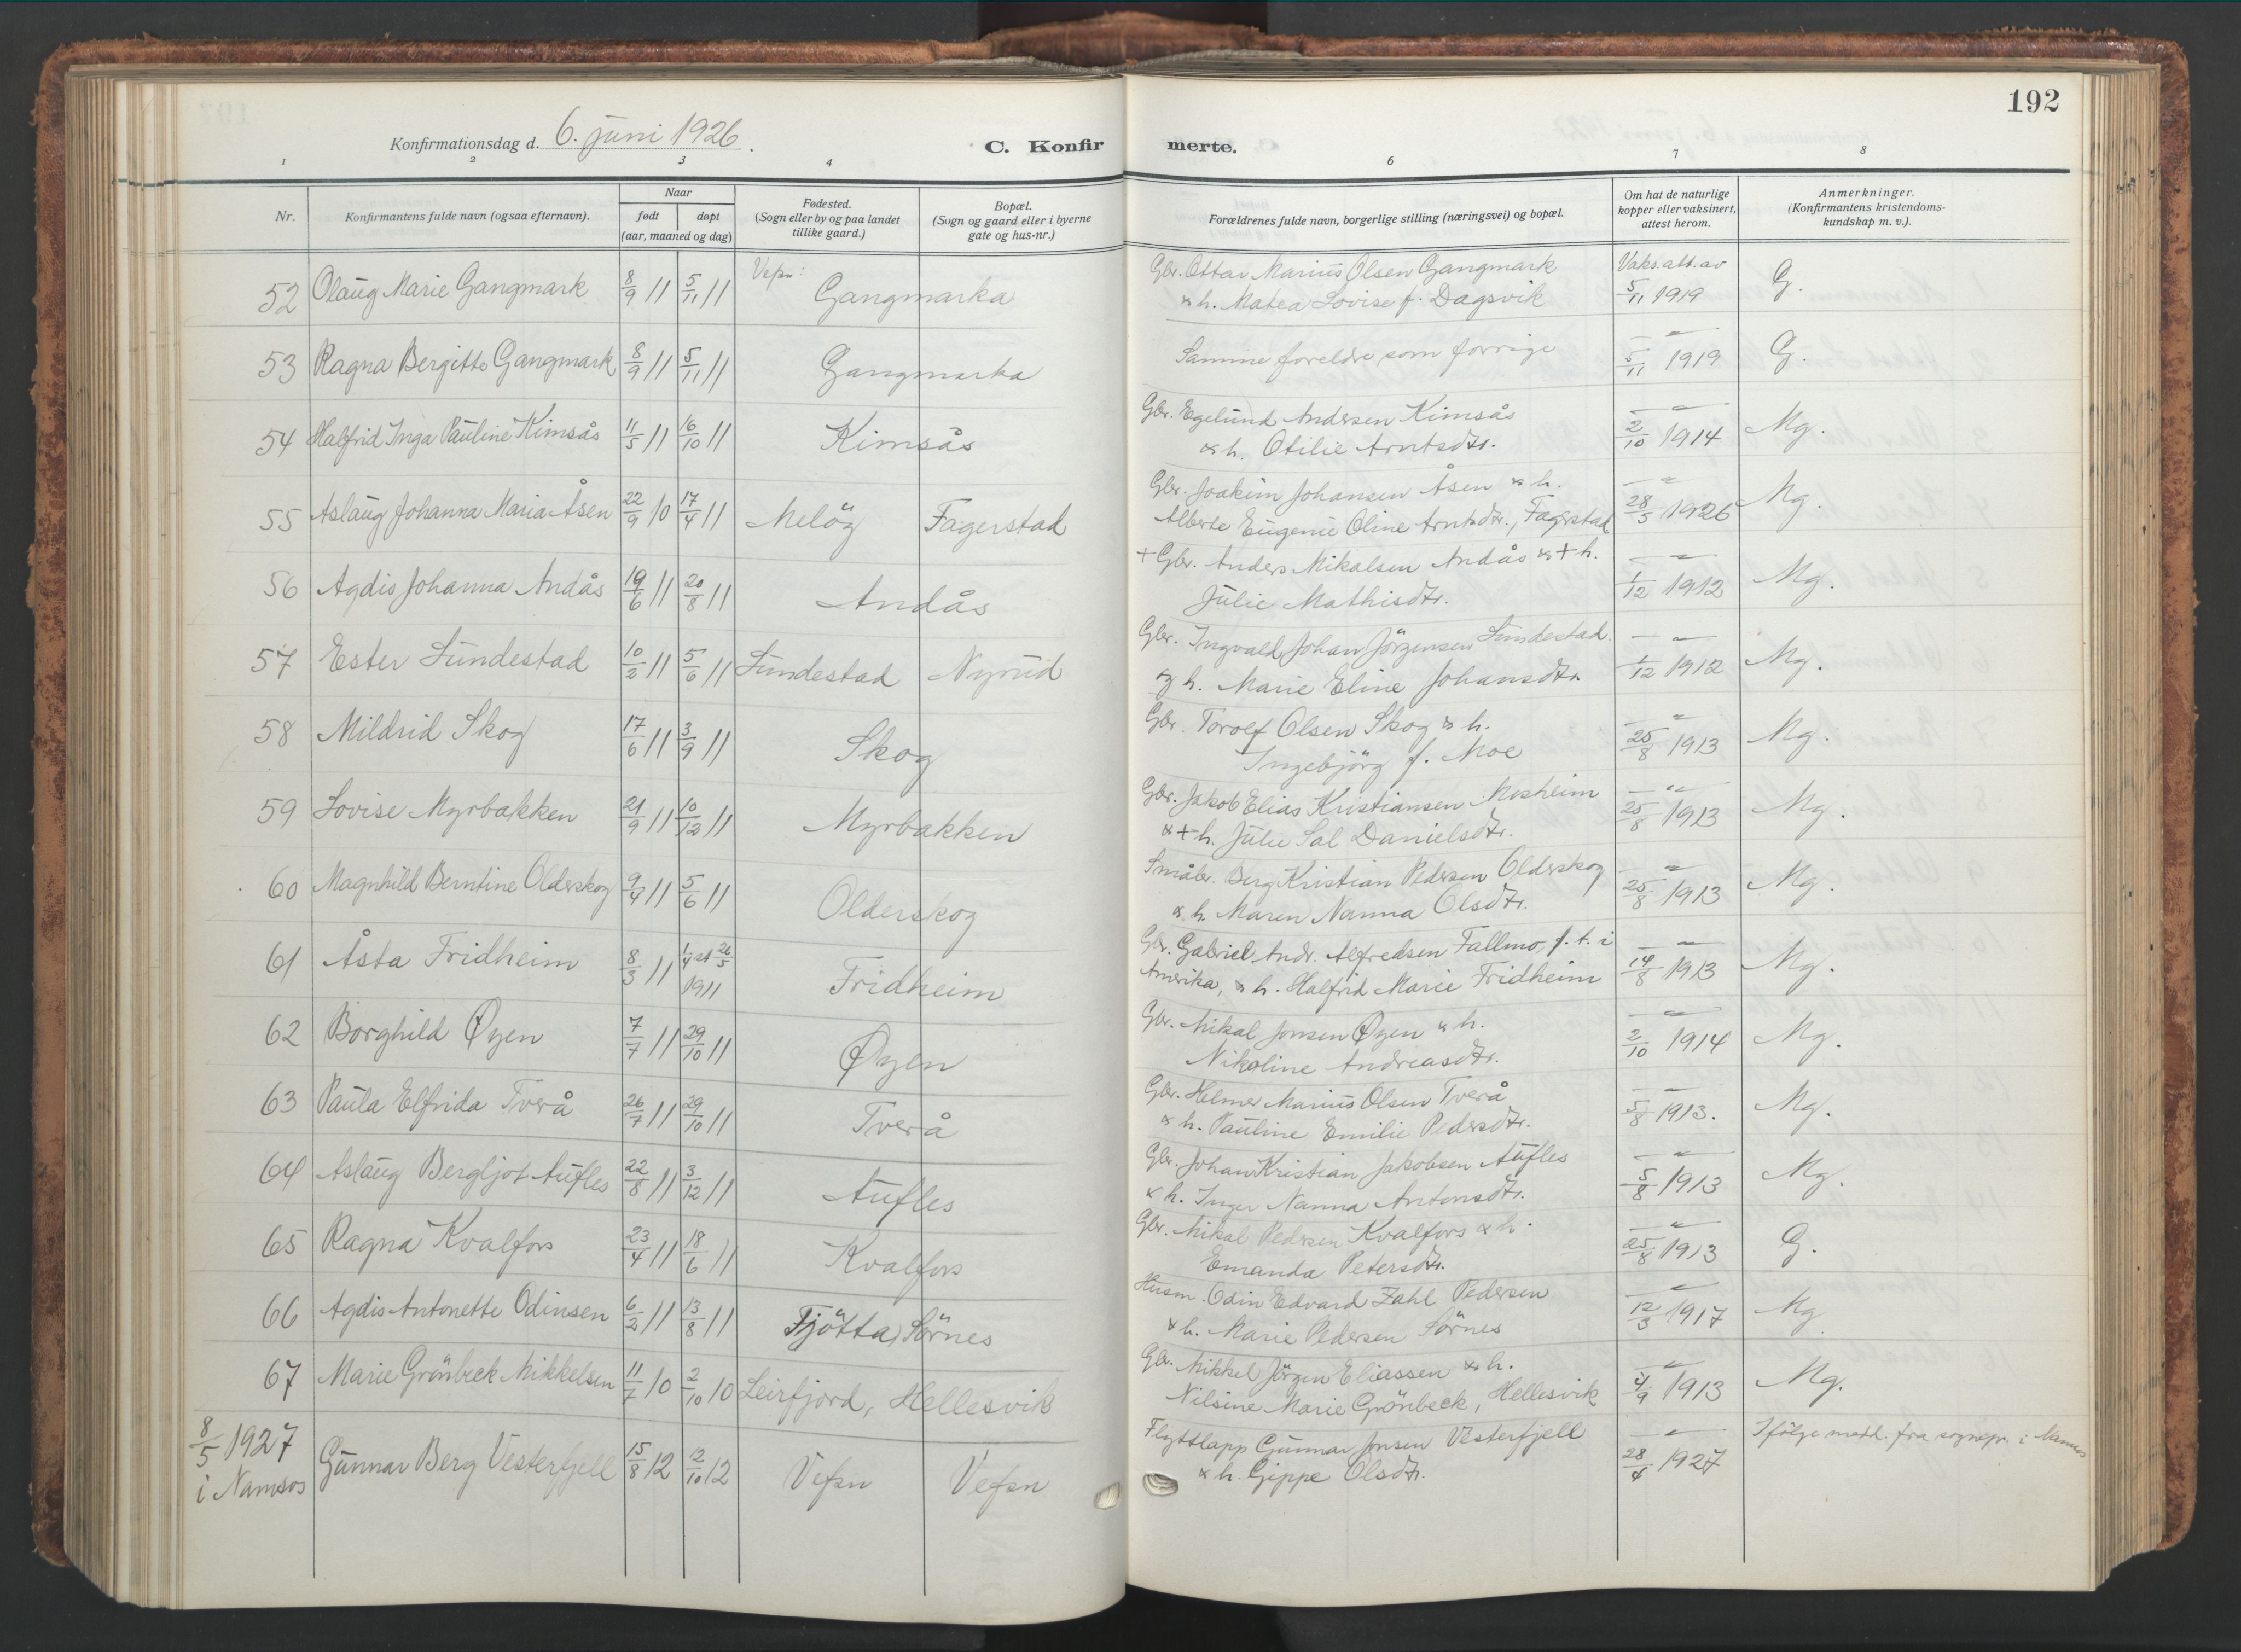 192
Konfirmationsdag d. 6. juni 1926.
C. Konfirmerte.
1 2 3 4 6 7 8
Nr.
Konfirmantens fulde navn (ogsaa efternavn).
Naar
født
døpt
(aar, maaned og dag)
Fødested.
(Sogn eller by og paa landet
tillike gaard.)
Bopæl.
(Sogn og gaard eller i byerne
gate og hus-nr.)
Forældrenes fulde navn, borgerlige stilling (næringsvei) og bopæl.
Om hat de naturlige
kopper eller vaksinert,
attest herom.
Anmerkninger.
(Konfirmantens kristendoms-
kundskap m. v.).
52 Olaug Marie Gangmark 8/9 11 5/11 11 Vefsn: Gangmarka
Gbr. Ottar Marius Olsen Gangmark
& h. Matea Lovise f. Dagsvik
Vaks.att. av
5/11 1919 G.
53 Ragna Bergitte Gangmark 8/9 11 5/11 11 Gangmarka
Samme foreldre som forrige
— " —
5/11 1919 G.
54 Halfrid Inga Pauline Kimsås 11/5 11 16/10 11 Kimsås
Gbr. Egelund Andersen Kimsås
& h. Otilie Arntsdtr.
— " —
2/10 1914 Mg.
55 Aslaug Johanna Maria Åsen 22/9 10 17/4 11 Melöy Fagerstad
Gbr. Joakim Johansen Åsen & h.
Alberte Eugenie Oline Arntsdtr., Fagerstad
— " —
28/5 1926 Mg.
56 Agdis Johanna Andås 19/6 11 20/8 11 Andås
+ Gbr. Anders Mikalsen Andås & + h.
Julie Mathisdtr.
— " —
1/12 1912 Mg.
57 Ester Lundestad 10/2 11 5/6 11 Lundestad Nyrud
Gbr. Ingvald Johan Jörgensen Lundestad.
og h. Marie Eline Johansdtr.
— " —
1/12 1912 Mg.
58 Mildrid Skog 17/6 11 3/9 11 Skog
Gbr. Torolf Olsen Skog & h.
Ingebjörg f. Moe
— " —
25/8 1913 Mg.
59 Lovise Myrbakken 21/9 11 10/12 11 Myrbakken
Gbr. Jakob Elias Kristiansen Mosheim
& + h. Julie Sal Danielsdtr.
— " —
25/8 1913 Mg.
60 Magnhild Berntine Olderskog 9/4 11 5/6 11 Olderskog
Småbr. Berg Kristian Pedersen Olderskog
& h. Maren Nanna Olsdtr.
— " —
25/8 1913 Mg.
61 Åsta Fridheim 8/3 11 1/4 st 26/5
1911 Fridheim
Gbr. Gabriel Andr. Alfredsen Fallmo, f. t. i
Amerika, & h. Halfrid Marie Fridheim
— " —
14/8 1913 Mg.
62 Borghild Øyen 7/7 11 29/10 11 Øyen
Gbr. Mikal Jonsen Øyen & h.
Nikoline Andreasdtr.
— " —
2/10 1914 Mg.
63 Paula Elfrida Tverå 26/7 11 29/10 11 Tverå
Gbr. Helmer Marius Olsen Tverå
& h. Pauline Emilie Pedersdtr.
— " —
5/8 1913. Mg.
64 Aslaug Bergljot Aufles 22/8 11 3/12 11 Aufles
Gbr. Johan Kristian Jakobsen Aufles
& h. Inger Nanna Antonsdtr.
— " —
5/8 1913 Mg.
65 Ragna Kvalfors 23/4 11 18/6 11 Kvalfors
Gbr. Mikal Pedersen Kvalfors & h.
Emanda Petersdtr.
— " —
25/8 1913 G.
66 Agdis Antonette Odinsen 6/2 11 13/8 11 Tjötta, Sörnes
Husm. Odin Edvard Zahl Pedersen
& h. Marie Pedersen Sörnes
— " —
12/3 1917 Mg
67 Marie Grönbeck Mikkelsen 11/7 10 2/10 10 Leirfjord, Hellesvik
Gbr. Mikkel Jörgen Eliassen & h.
Nilsine Marie Grönbeck, Hellesvik
— " —
4/9 1913 Mg.
8/5 1927
i Namsos
Gunnar Berg Vesterfjell 15/8 12 12/10 12 Vefsn Vefsn
Flyttlapp Gunnar Jonsen Vesterfjell
& h. Gippe Olsdtr.
— " —
28/4 1927
Ifölge medd. fra sognepr. i Namsos